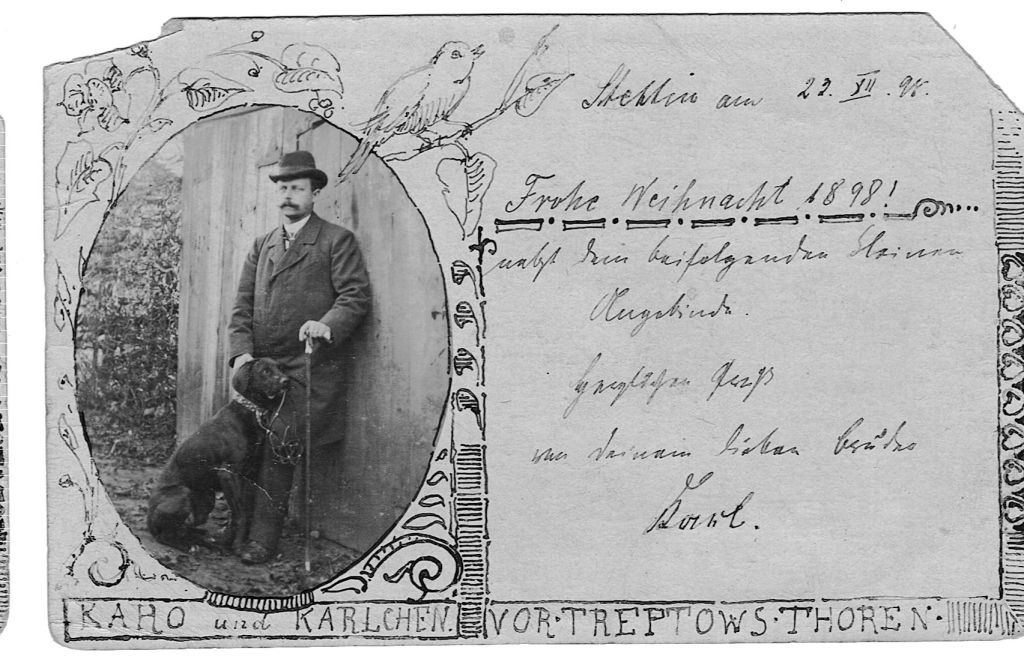 Stettin am 22. XII. 98.
Frohe Weihnacht 1898!
nebst dem beifolgenden kleinen
Angebinde.
Herzlichen Gruß
von deinem lieben Bruder
Karl.
KARO und KARLCHEN. VOR·TREPTOWS·THOREN·